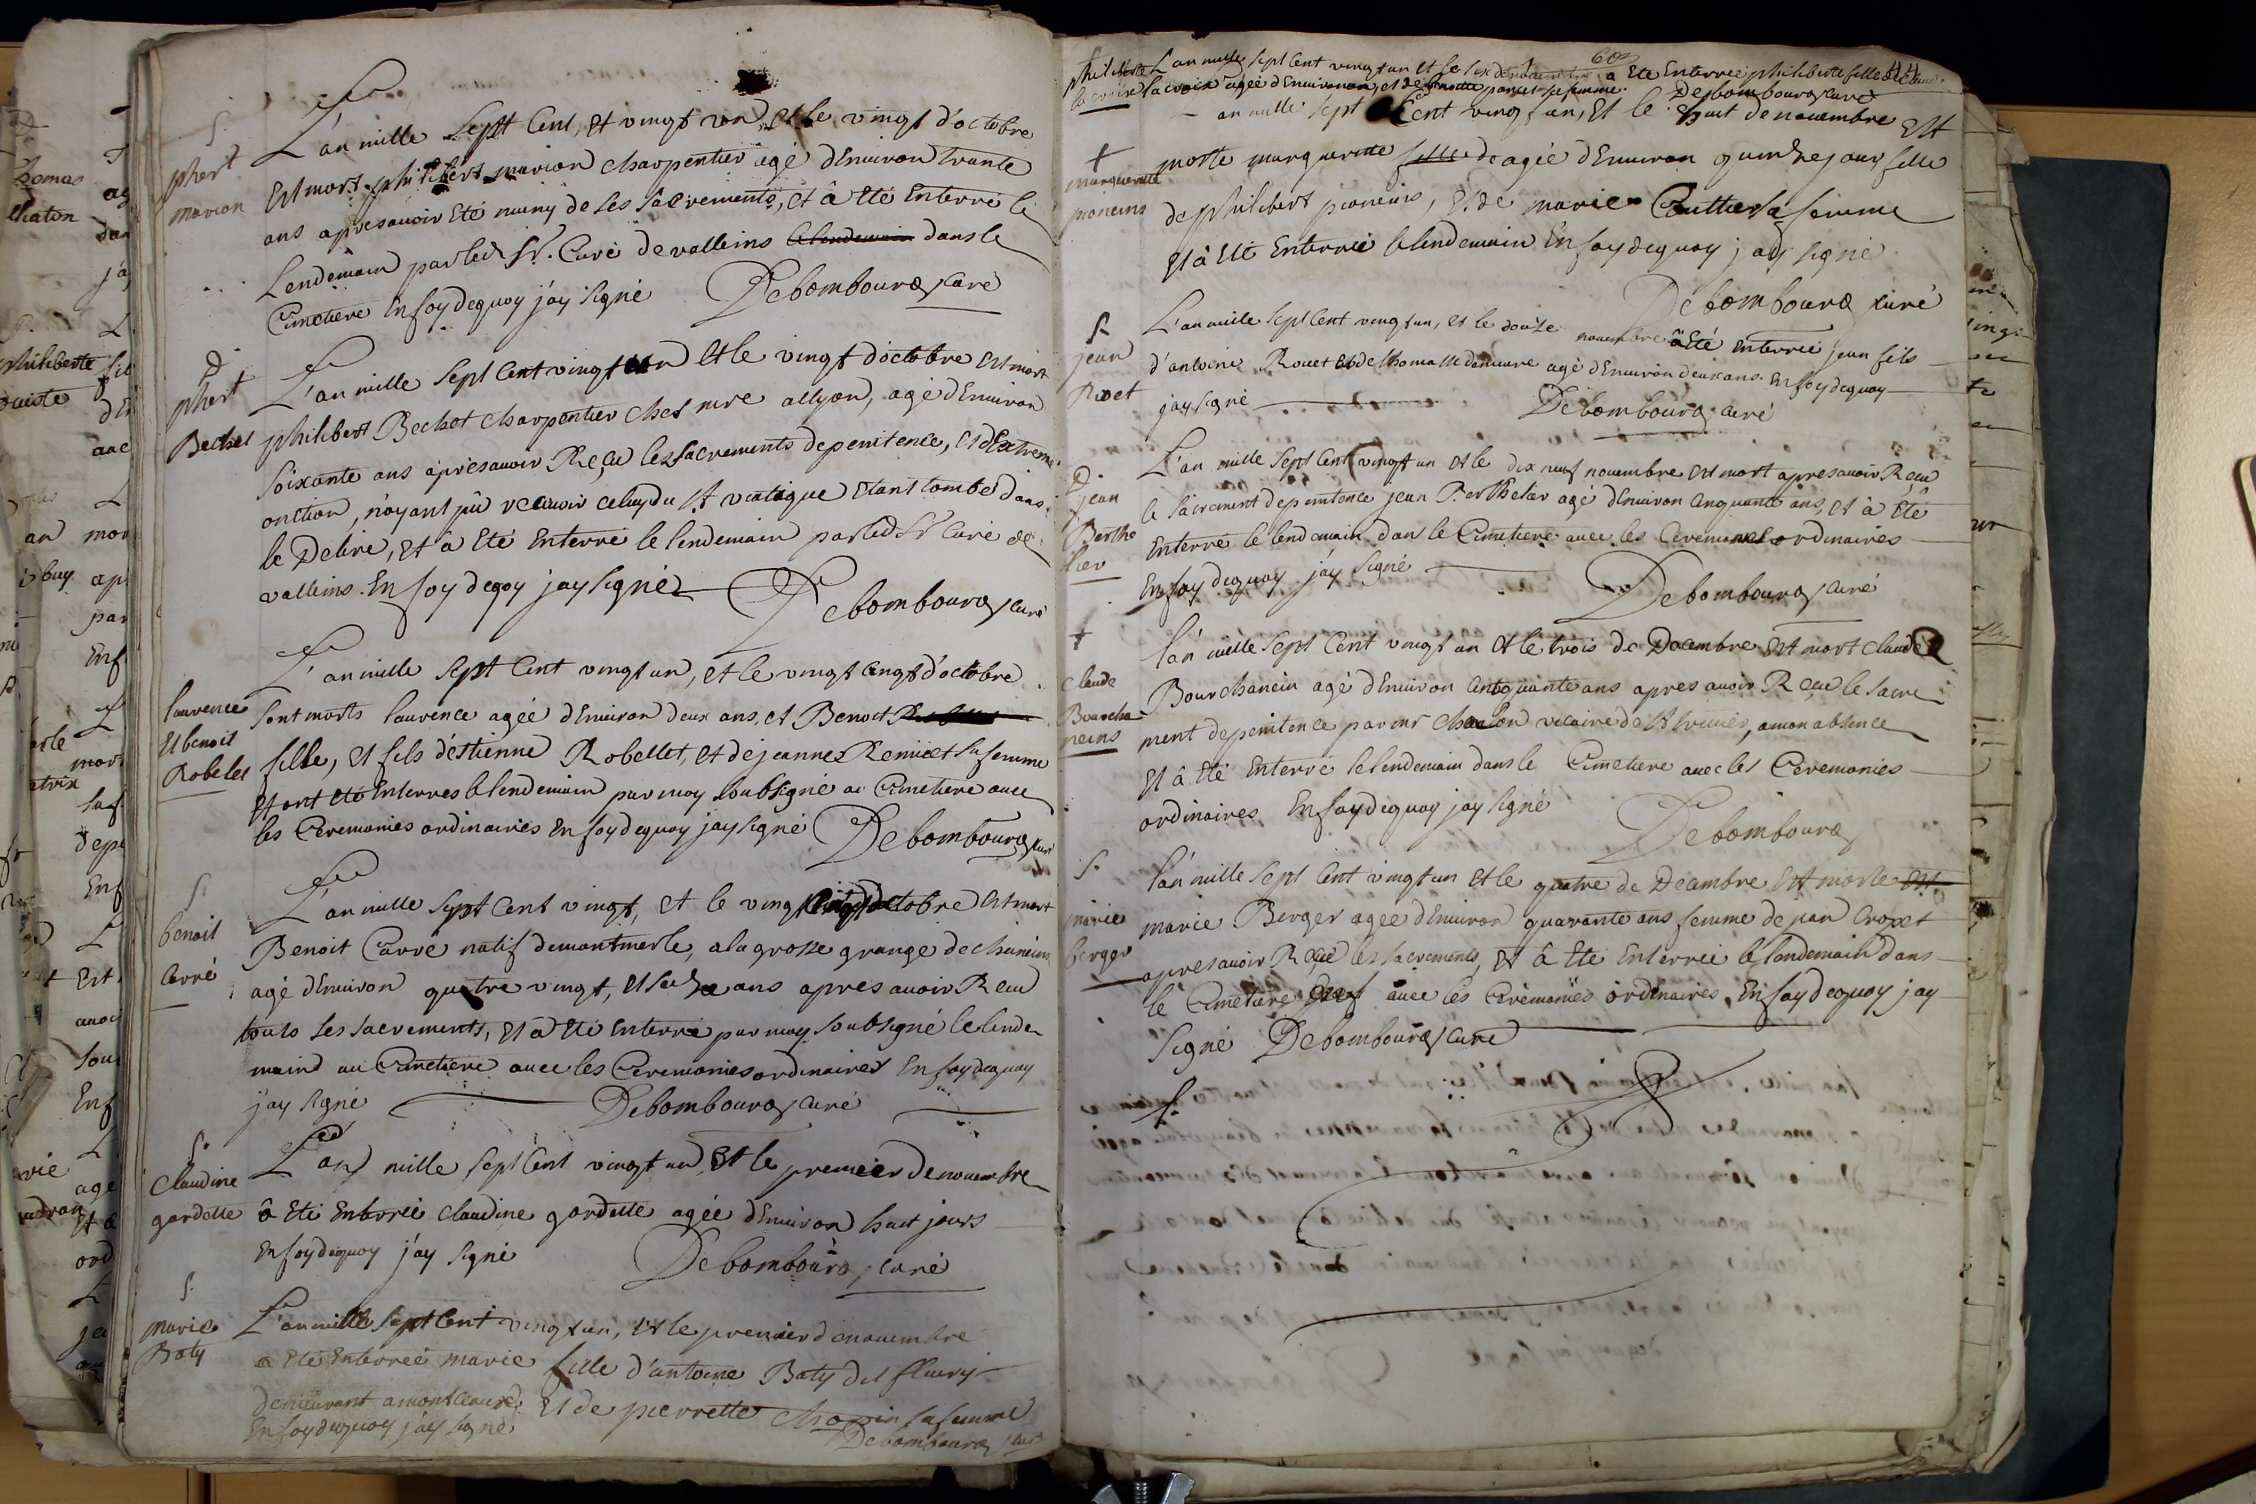 S.
phert
marion
L'an mille sept Cent, et vingt un, et le vingt d'octobre
Est mort philibert marion charpentier agé d'Environ trante
ans apresavoir Eté muny de ses sacrements, et à eté Enterré le
Lendemain par led Sr. Curé de valleins le lendemain dans le
Cimetiere En foy dequoy j'ay signé Debombourg curé
D
phert
Bechet
L'an mille sept Cent vingt un Et le vingt d'octobre est mort
philibert Bechet charpentier ches mre allyon, agé d'Environ
soixante ans apresavoir Reçu les sacrements depenitence, et d'Extreme
onction, n'ayant pû recevoir celuy du st viatique Etant tombé dans
le Delire, et à Eté Enterré le lendemain par led Sr Curé de
valleins. En foy deqoy jay signé Debombourg curé
laurence
Et benoit
Robelet
L'an mille sept Cent vingt un, et le vingt cinqt d'octobre
sont morts laurence agée d'Environ deux ans, et Benoit
fille, et fils d'estienne Robellet, et de jeanne Remiet sa femme
et ont eté Enterres le lendemain par moy soubsigné au Cimetiere avec
les Ceremonies ordinaires En foy dequoy jay signé Debombourg curé
S.
benoit
Carré
L'an mille sept Cent vingt, et le vingt d'octobre Est mort
Benoit Carré natif de montmerle, a la grosse grange de chaneins
agé d'Environ quatre vingt, et seize ans apres avoir Recu
touts ses sacrements, et à eté enterré par moy soubsigné le lende
maind au Cimetiere avec les Ceremonies ordinaires En foy dequoy
j'ay signé Debombourg curé
S.
Claudine
gardette
L'an mille sept Cent vingt un, Et le premier de novembre
à Eté Enterrée claudine gardette agée d'Environ huit jours
En foy dequoy j'ay signé Debombourg curé
S.
marie
Baty
L'an mille sept Cent vingt un, et le premier denovembre
a Eté Enterreé marie fille d'antoine Baty de fluery
demeurant a montceaux: et de pierrette chopin sa femme
En foy dequoy j'ay signé Debombourg curé
philiberte
lacroix
L'an mille sept Cent vingt un et le six denovembre a Eté Enterrée philiberte fille de
lacroix agée d'Environ et de poncet sa femme. Debombourg curé
+
marguerite
pioneins
an mille sept Cent vingt un, Et le huit de novembre Est
morte marguerite fille de agée d'Environ quinze jour fille
de philibert pioneins, Et de marie Cautier sa femme
Et à Eté Enterrée le lendemain En foy dequoy j ay signé
Debombourg curé
S
jean
Rivet
L'an mille sept Cent vingt un, et le douze novembre à Eté enterrée jean fils
d'antoine Rouet et de thomasse demeure agé d'Environ deux ans. En foy dequoy
jay signé Debombourg curé
D.
jean
Berthe
lier
L'an mille sept Cent vingt un et le dix neuf novembre est mort apresavoir Reçu
le sacrement depenitence jean Berthelier agé d'Environ cinquante ans, et à Eté
Enterré le lendemain dans le Cimetiere avec les Ceremonies ordinaires
En foy dequoy j'ay signé Debombourg curé
+
Claude
Bourcha
neins
l'an mille sept Cent vingt un et le trois de Decembre est mort claude
Bourchanein agé d'Environ cinquante ans apres avoir Reçu le sacre
ment depenitence par mr chaslon vicaire de st trivier, a mon absence
et à Eté Enterré le lendemain dans le Cimetiere avec les Ceremonies
ordinaires En foy dequoy jay signé Debombourg
S.
marie
berger
l'an mille sept Cent vingt un et le quatre de Decembre est morte est
marie Berger agée d'Environ quarante ans femme de jean Crozet
apresavoir Reçu les sacrements, et à Eté Enterrée le lendemain dans
le Cimetiere avec les Ceremonies ordinaires, En foy dequoy jay
signé Debombourg curé